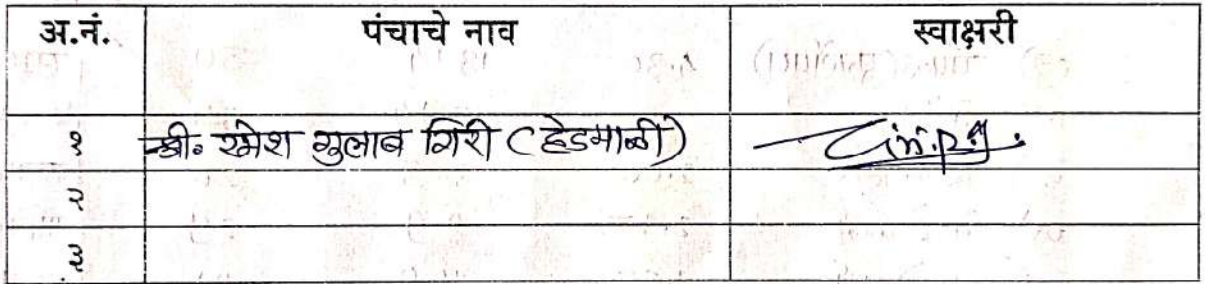 अ.नं. पंचाचे नाव स्वाक्षरी
१ श्री. रमेश गुलाब गिरी (हेडमाळी)
२
३